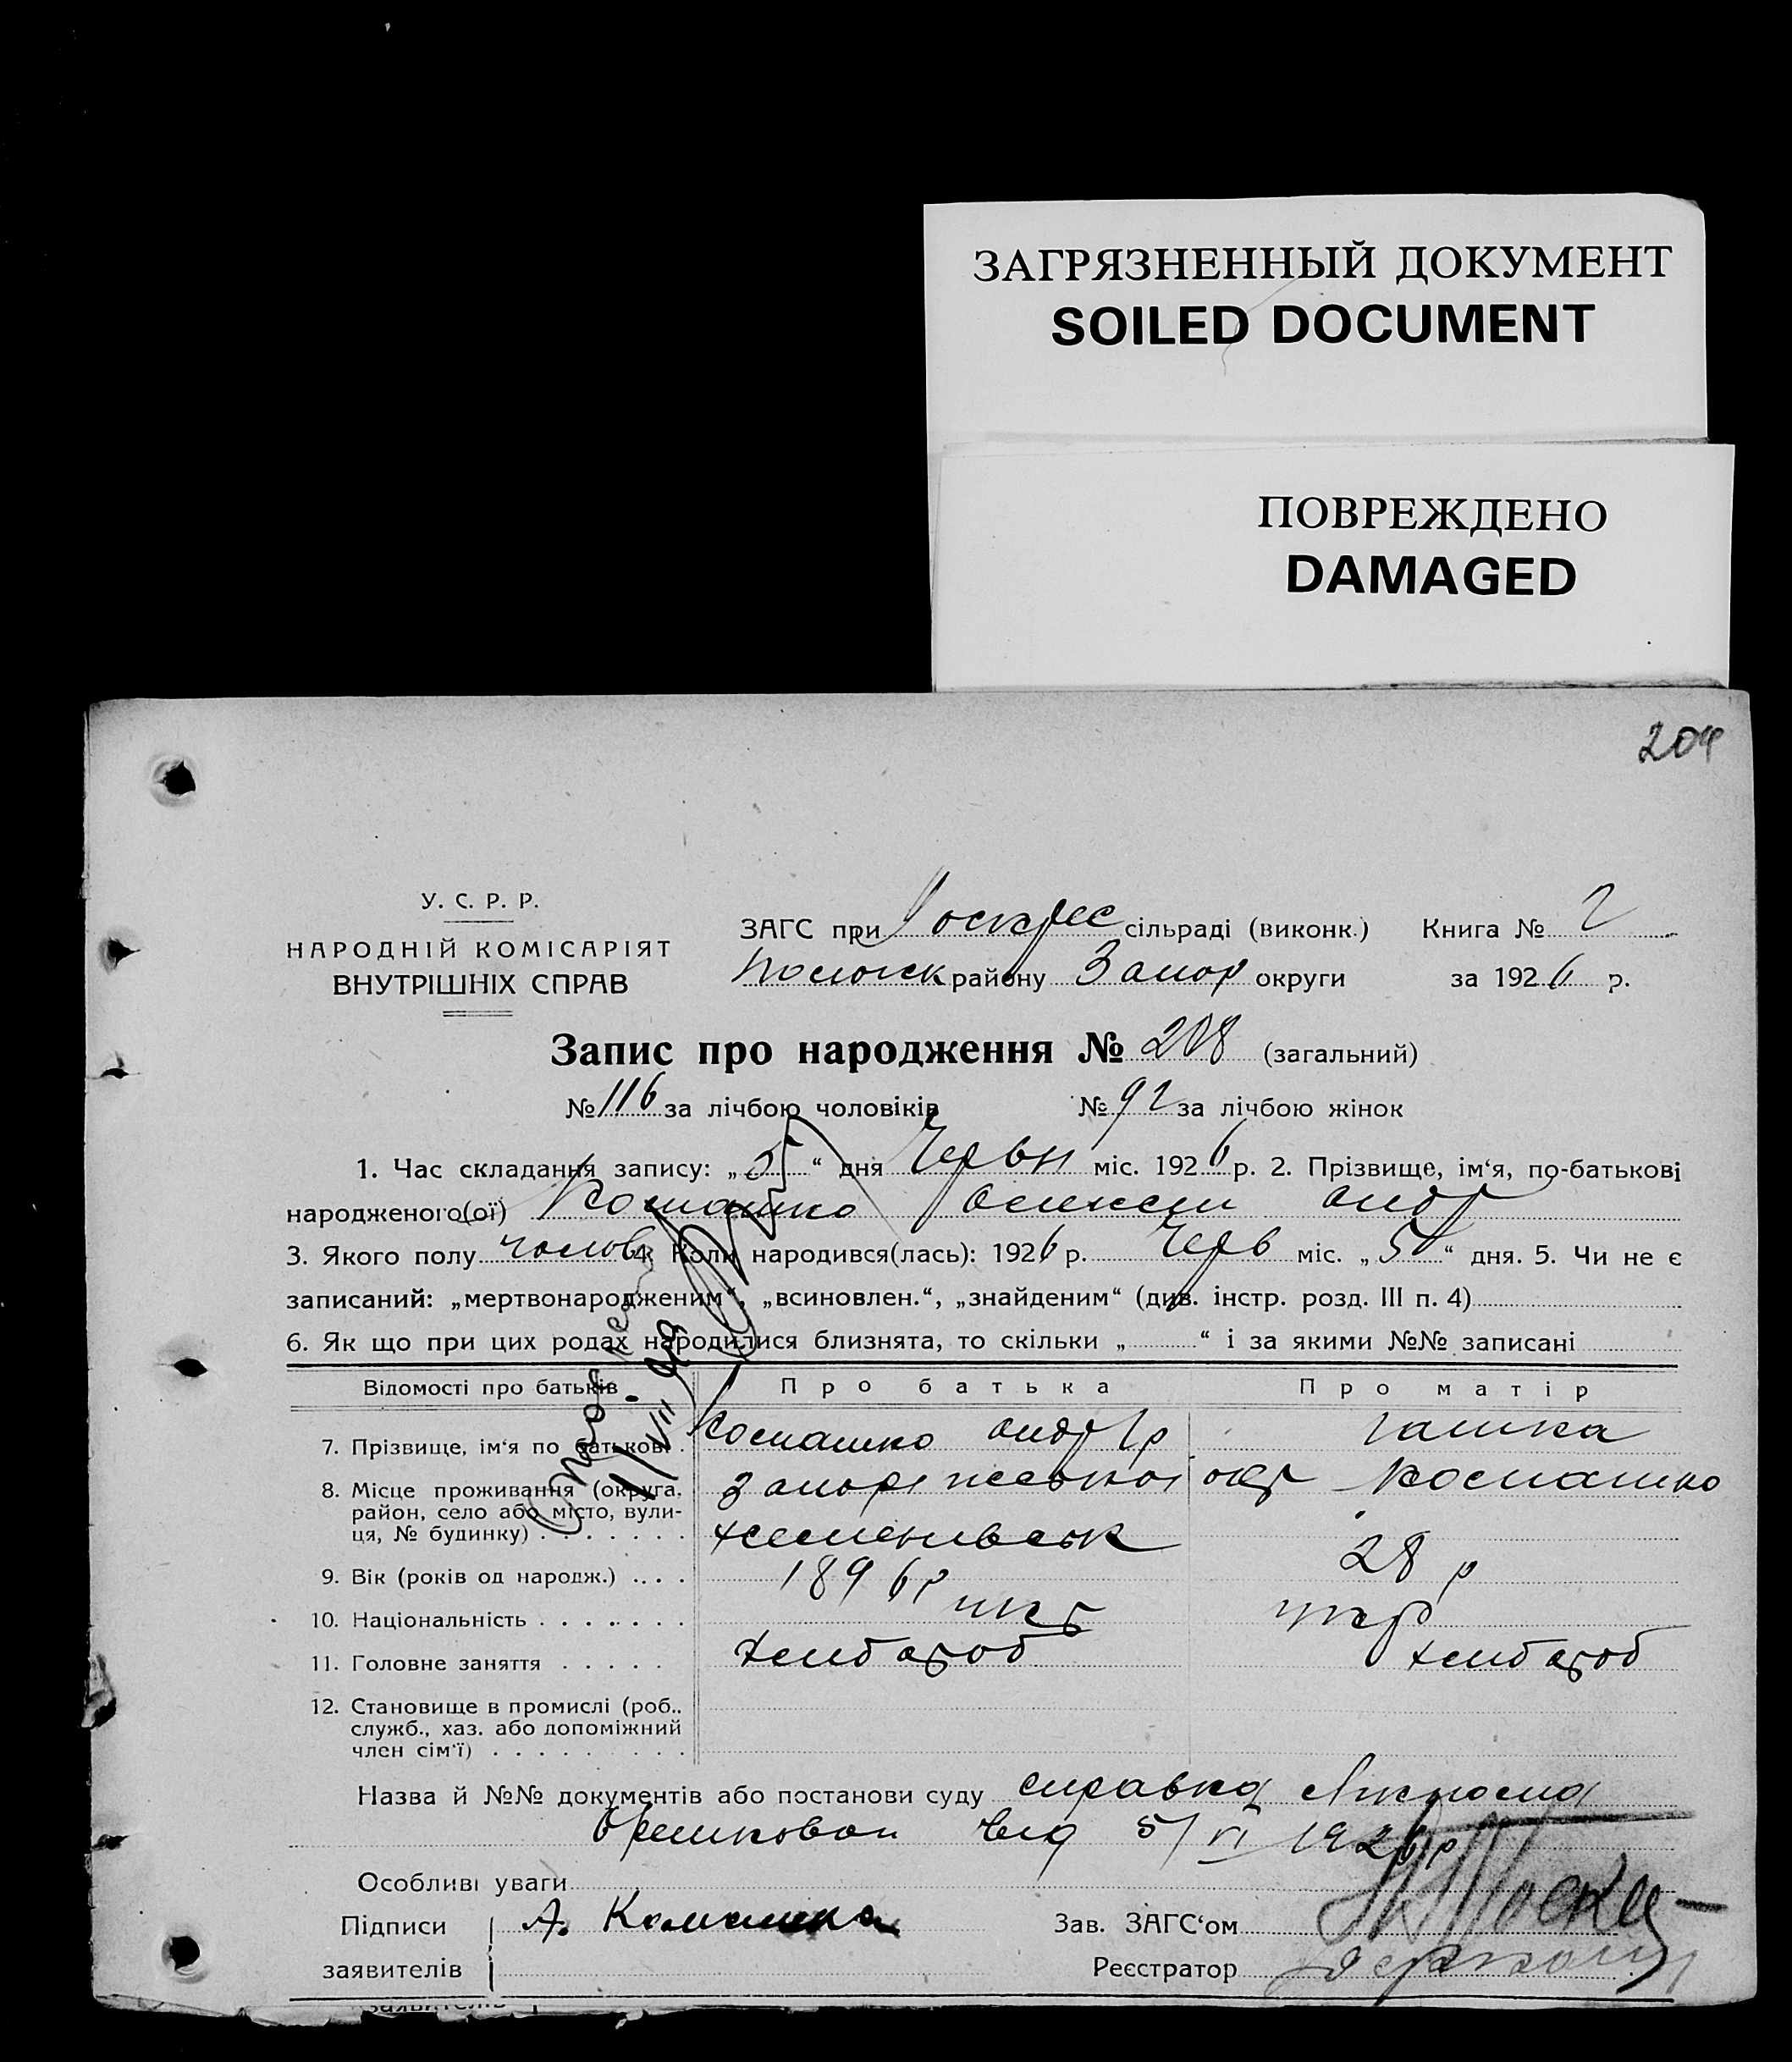 ЗАГРЯЗНЕННЫЙ ДОКУМЕНТ
SOILED DOCUMENT
ПОВРЕЖДЕНО
DAMAGED
204
У. С. Р. Р.
НАРОДНІЙ КОМІСАРІЯТ
ВНУТРІШНІХ СПРАВ
ЗАГС при Воскрес сільраді (виконк.) Книга № 2
Пологськ району Запор округи за 1926 р.
Запис про народження № 208 (загальний)
№ 116 за лічбою чоловіків № 92 за лічбою жінок
1. Час складання запису: „5“ дня Червн міс. 1926 р. 2. Прізвище, ім‘я, по-батькові
народженого(ої) Комашко Олексій Андр
3. Якого полу чолов 4. Коли народився(лась): 1926 р. Черв міс. „5“ дня. 5. Чи не є
записаний: „мертвонародженим“, „всиновлен.“, „знайденим“ (див. інстр. розд. III п. 4)
6. Як що при цих родах народилися близнята, то скільки „ “ і за якими №№ записані
Відомості про батьків Про батька Про матір
7. Прізвище, ім‘я по батькові Комашко Андр
8. Місце проживання (округа, район, село або місто, вулиця, № будинку) Запоріжської окр Комашко
9. Вік (років од народж.) 1896 р 28 р
10. Національність укр укр
11. Головне заняття хлібороб хлібороб
12. Становище в промислі (роб., служб., хаз. або допоміжний член сім‘ї)
Назва й №№ документів або постанови суду справка
від 5/VI 1926 р
Особливі уваги
Підписи А. Комашка Зав. ЗАГС‘ом
заявителів Реєстратор